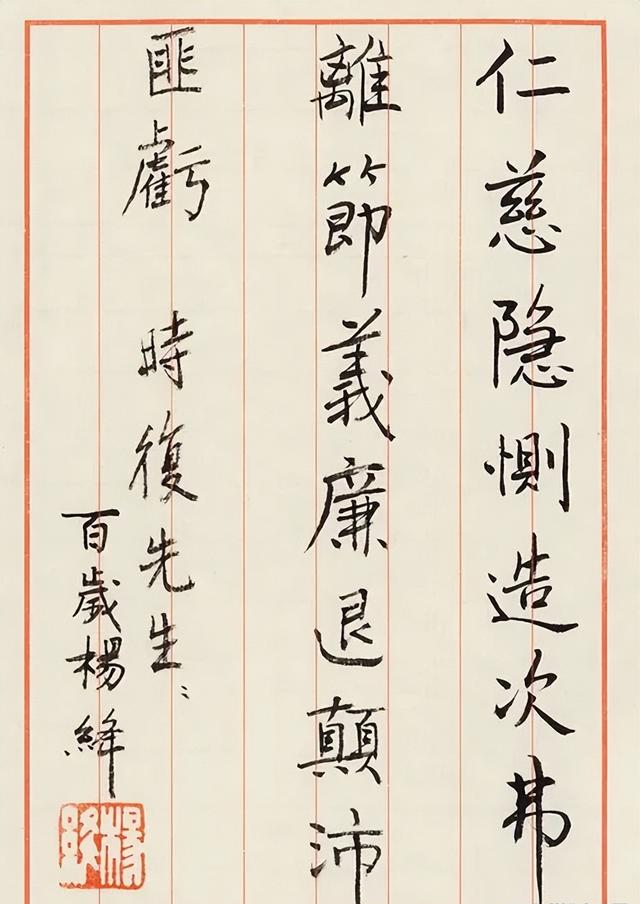 仁慈隐惻造次弗
離節義廉退顛沛
匪虧 時復先生:
百歲楊絳
楊絳